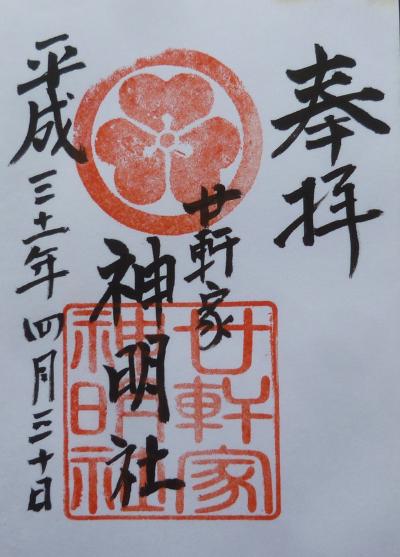 奉拝
廿軒家
神明社
廿軒家
神明社
平成三十一年四月三十日